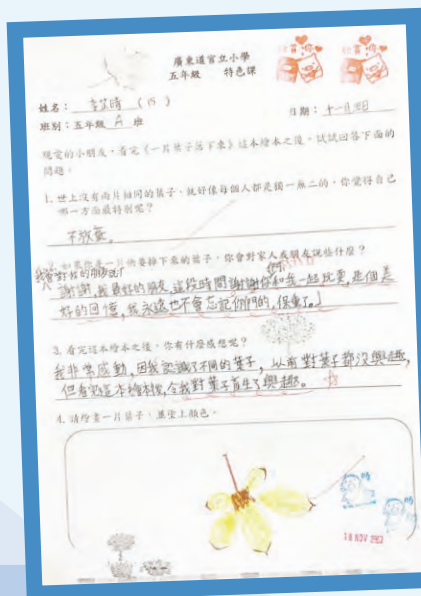 廣東道官立小學
五年級 特色課
姓名：李芷晴（15）
日期：十一月三日
班別：五年級 A 班
親愛的小朋友，看完《一片葉子落下來》這本繪本之後，試試回答下面的
問題。
1. 世上沒有兩片相同的葉子，就好像每個人都是獨一無二的，你覺得自己
哪一方面最特別呢？
不放棄。
2. 如果你是一片快要掉下來的葉子，你會對家人或朋友說些什麼？
我會對我的朋友說：「
謝謝，我最好的朋友，這段時間謝謝你們和我一起玩耍，是個美
好的回憶，我永遠也不會忘記你們的，保重了。」
3. 看完這本繪本之後，你有什麼感想呢？
我非常感動，因我認識了不同的葉子，以前對葉子都沒興趣，
但看完這本繪本後，令我對葉子產生了興趣。
4. 請繪畫一片葉子，並塗上顏色。
18 NOV